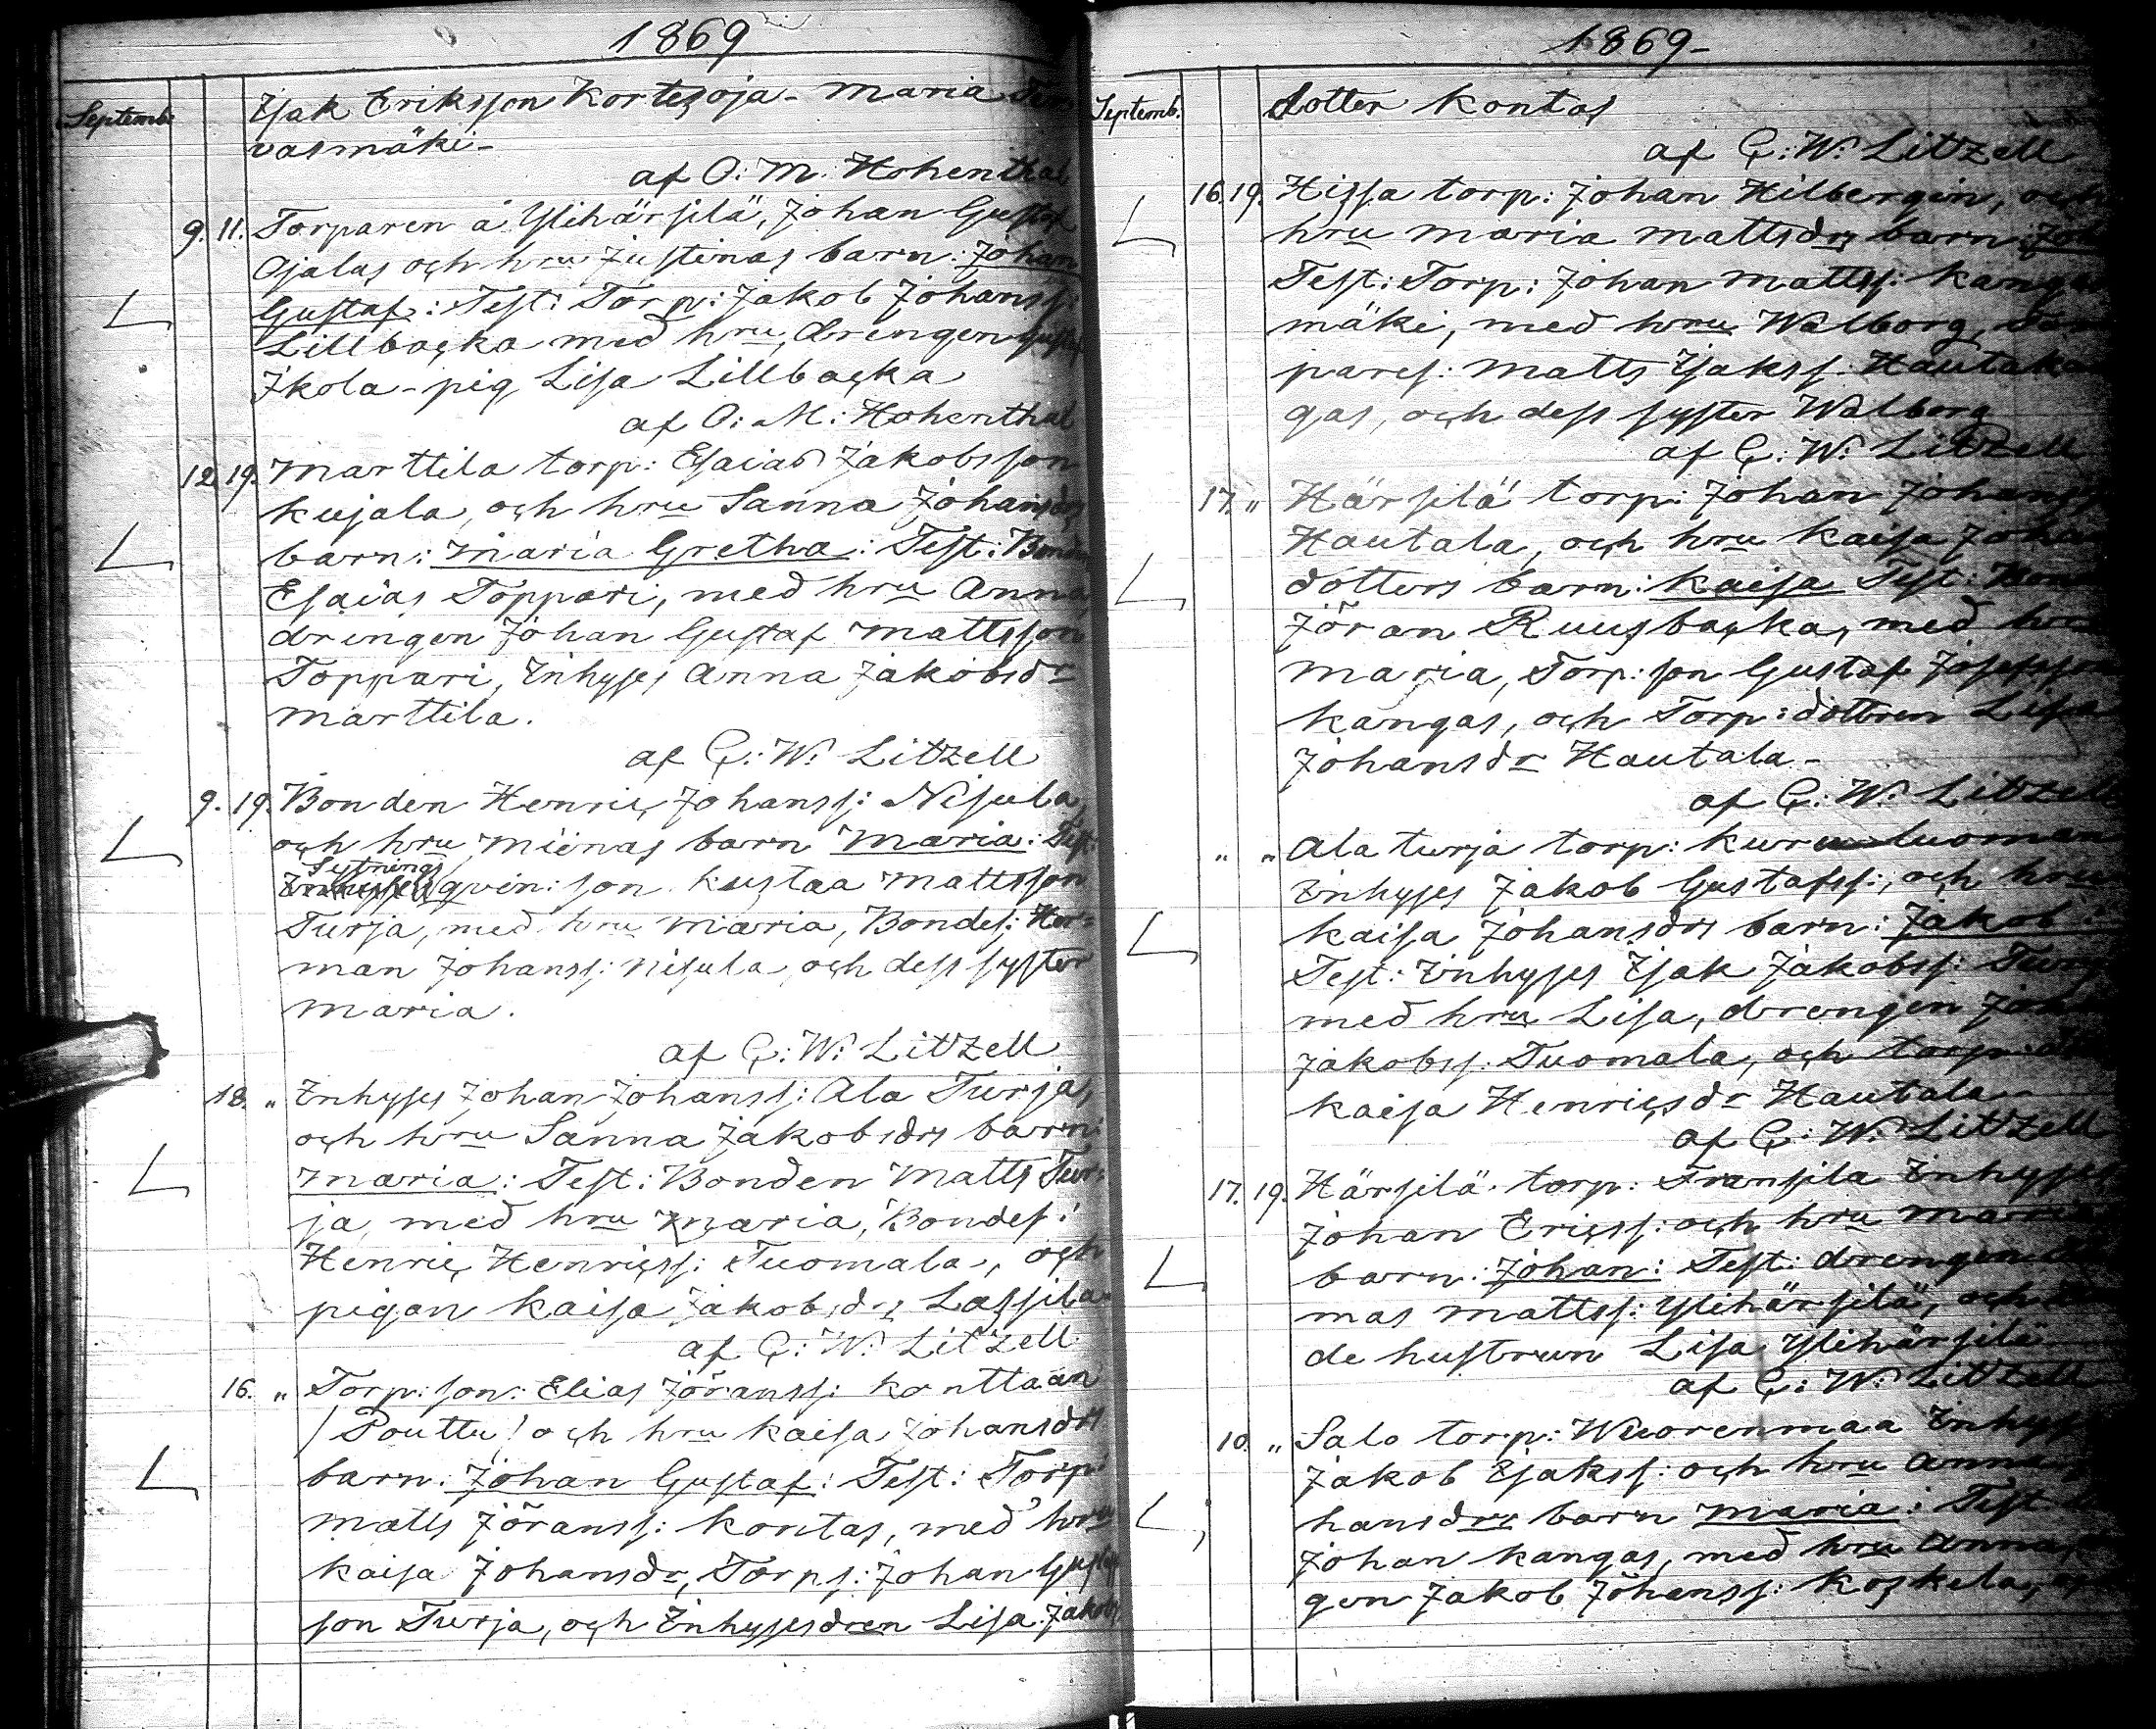 1869
Septemb:
Isak Eriksson Kortesoja - Maria
vasmäki -
af O: M: Hohenthal
9. 11. Torparen å Ylihärsilä, Johan Gustaf
Ojalas och hru Justinas barn: Johan
Gustaf: Test: Torp: Jakob Johanss:
Lillbacka med hru, drengen
Ikola - pig Lisa Lillbacka
af O: M: Hohenthal
12. 19. Marttila torp: Esaias Jakobsson
Kujala, och hru Sanna Johansdrs
barn: Maria Gretha: Test: Bonden
Esaias Toppari, med hru Anna,
drengen Johan Gustaf Mattsson
Toppari, Inhyses Anna Jakobsdr
Marttila.
af G: W: Litzell
9. 19. Bonden Henric Johanss: Nisula,
och hru Miinas barn Maria: Test:
Sytnings
qvin: son Kustaa Mattsson
Turja, med hru Maria, Bondes: Her=
man Johanss: Nisula, och dess syster
Maria.
af G: W: Litzell
18. " Inhyses Johan Johanss: Ala Turja,
och hru Sanna Jakobsdrs barn:
Maria: Test: Bonden Matts Tur=
ja, med hru Maria, Bondes:
Henric Henricss: Tuomala, och
pigan Kaisa Jakobsdr Lassila
af G: W: Litzell
16. " Torp: son: Elias Jöranss: Konttaan
/Pouttu/ och hru Kaisa Johansdrs
barn: Johan Gustaf: Test: Torp:
Matts Jöranss: Kontas, med hru
Kaisa Johansdr, Torps: Johan
son Turja, och Inhysesdren Lisa Jakobs
1869-
Septemb.
dotter Kontas
af G: W: Litzell
16. 19. Hissa torp: Johan Hilbergin, och
hru Maria Mattsdrs barn:
Test: Torp: Johan Mattss: Kangas
mäki, med hru Walborg,
pares: Matts Isakss: Hautakan
gas, och dess syster Walborg
af G: W: Litzell
17. " Härsilä torp: Johan Johanss
Hautala, och hru Kaisa Johans
dotters barn: Kaisa Test:
Jöran Ruusbacka, med hru
Maria, Torp: son Gustaf Josefsson
Kangas, och Torp: dottren Lisa
Johansdr Hautala -
af G: W: Litzell
" " Ala turja torp: Kurunluoman
Inhyses Jakob Gustafss:, och hru
Kaisa Johansdrs barn: Jakob
Test: Inhyses Isak Jakobss: Turja
med hru Lisa, drengen Johan
Jakobss: Tuomala, och
Kaisa Henricsdr Hautala -
af G: W: Litzell
17. 19. Härsilä torp: Fransila Inhyses
Johan Ericss: och hru Maria
barn: Johan: Test: drengen
mas Mattss: Ylihärsilä, och
de hustrun Lisa Ylihärsilä
af G: W: Litzell
10. " Salo torp: Wuorenmaa
Jakob Isakss: och hru Anna
hansdrs barn Maria: Test
Johan Kangas, med hru Anna,
gen Jakob Johanss: Koskela,